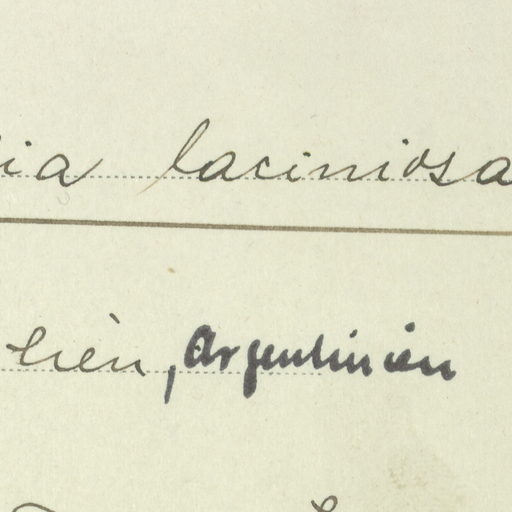 ia laciniosa
lien, Argentinien